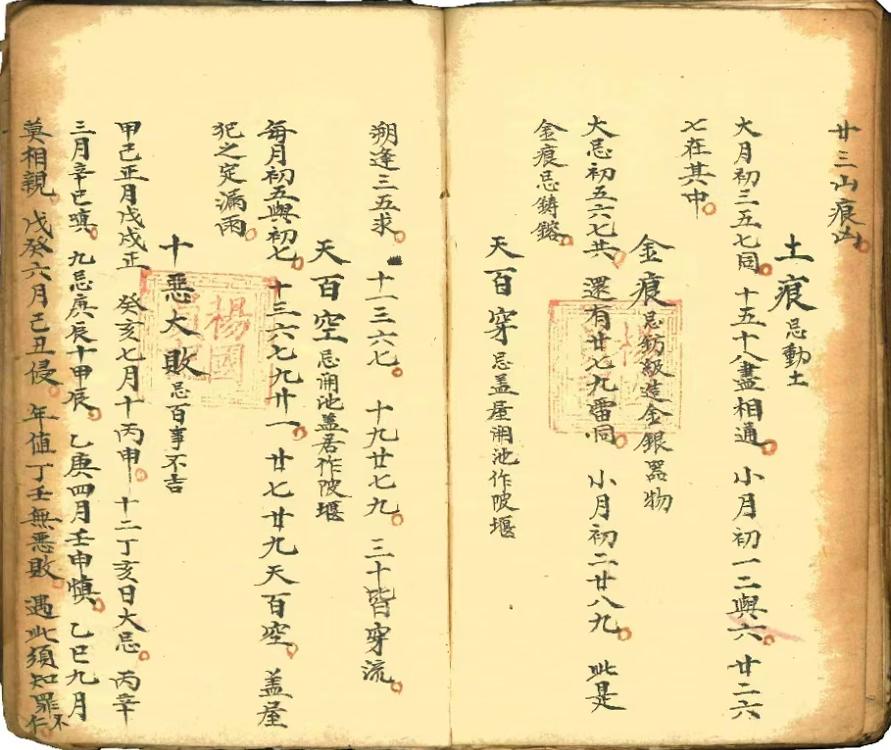 廿三山痕凶
土痕忌動土
大月初三五七同 十五十八盡相通 小月初一二與六 廿二六
七在其中
金痕忌鈁級造金銀器物
大忌初五六七共 還有廿七九雷同 小月初二廿八九 此是
金痕忌鑄鎔
天百穿忌盖屋開池作陂堰
朔逢三五求 十一三六七 十九廿七九 三十皆穿流
天百空忌開池盖居作陂堰
每月初五與初七 十三六七九廿一 廿七廿九天百空 盖屋
犯之定漏雨
十惡大敗忌百事不吉
甲己正月戊戌正 癸亥七月十丙申 十二丁亥日大忌 丙辛
三月辛巳嗔 九忌庚辰十甲辰 乙庚四月壬申慎 乙巳九月
莫相親 戊癸六月己丑侵 年值丁壬無惡敗 遇此須知罪不仁
楊國